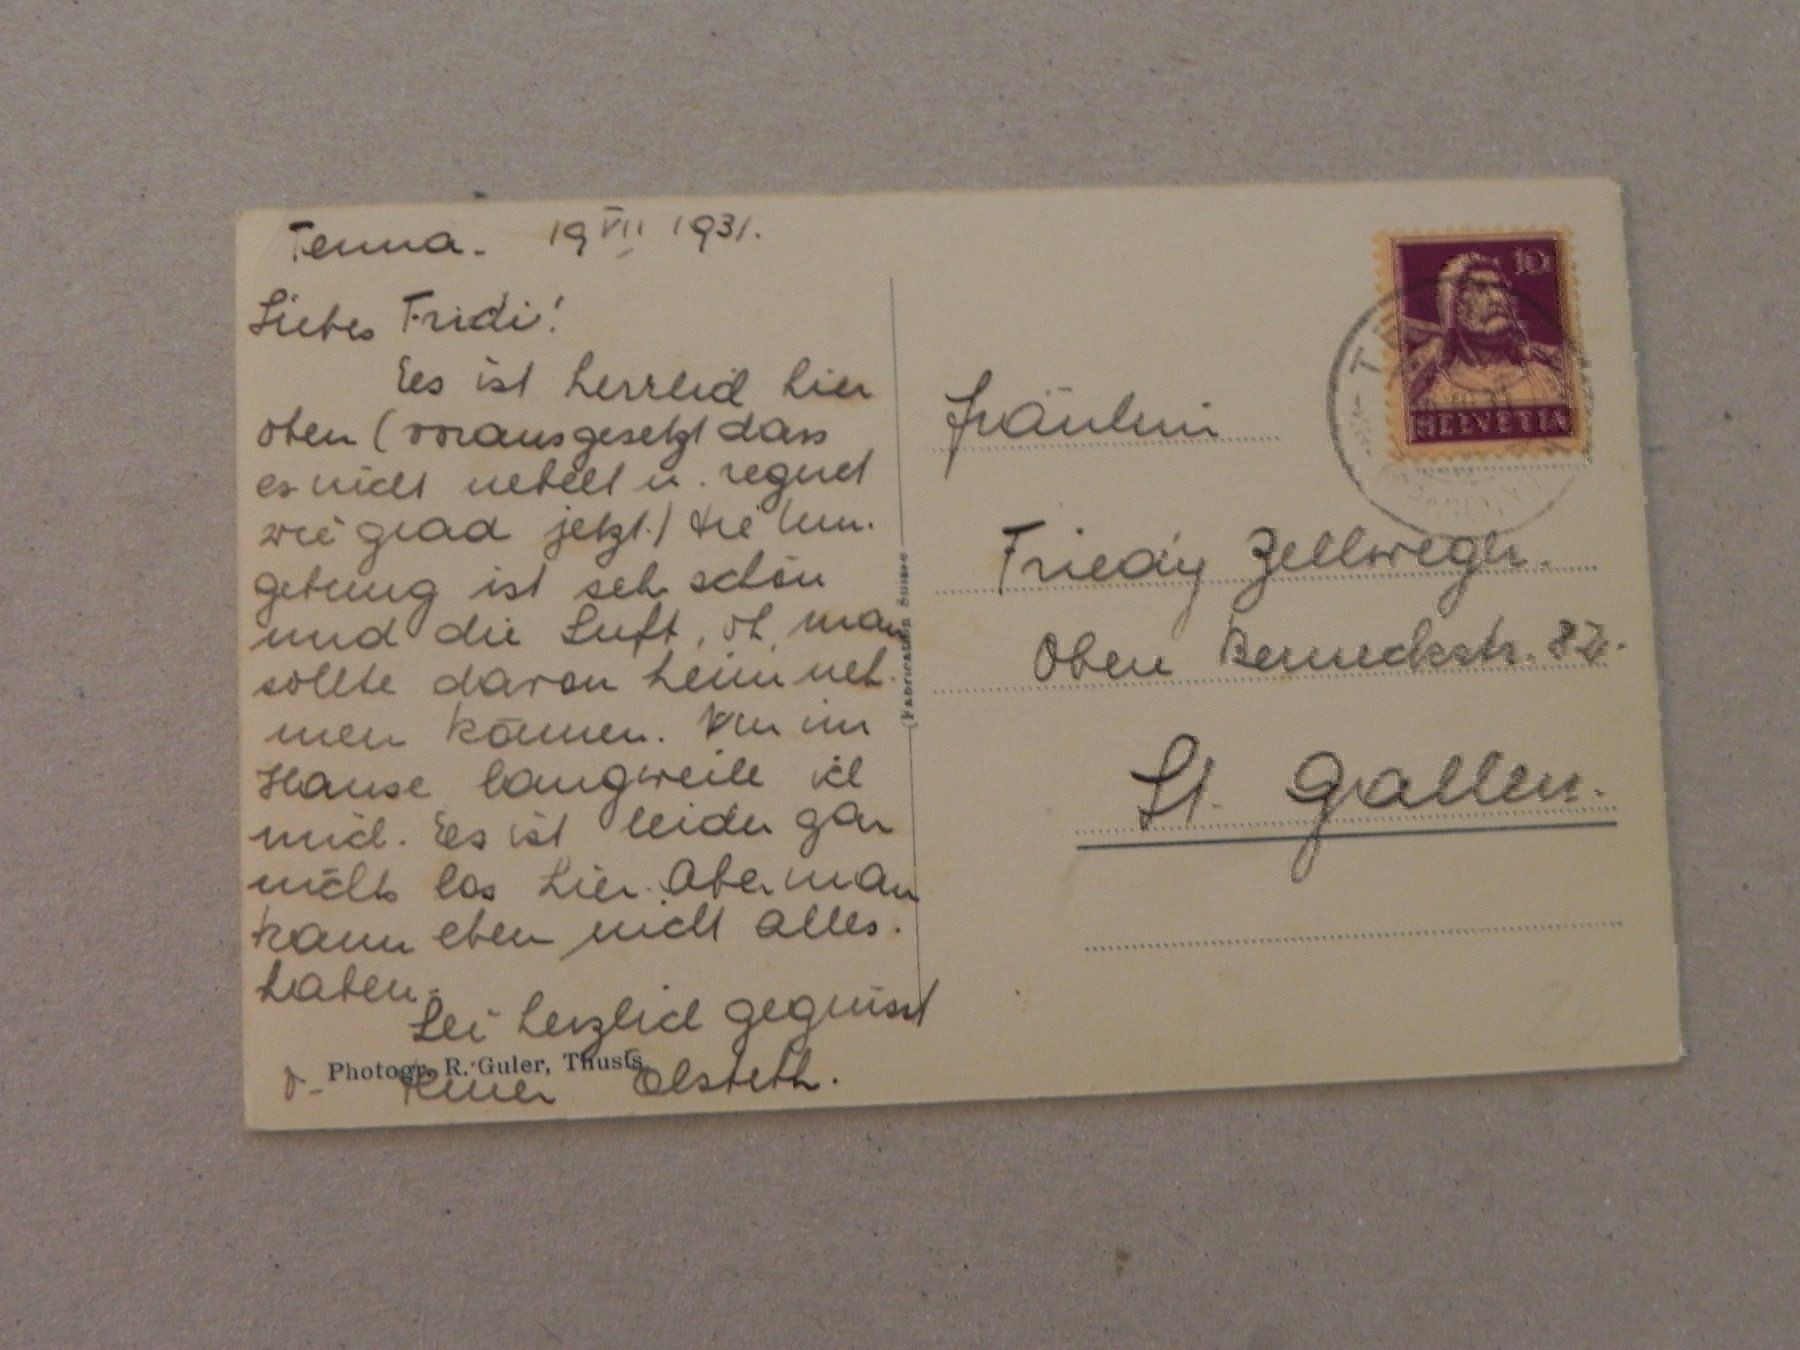 Tenna. 19 VII 1931.
Liebes Fridi!
Es ist herrlich hier
oben (vorausgesetzt dass
es nicht nebelt u. regnet
wie grad jetzt.) Die Um-
gebung ist sehr schön
und die Luft, oh, man
sollte davon heim neh-
men können. Nur im
Hause langweile ich
mich. Es ist leider gar
nichts los hier. Aber man
kann eben nicht alles.
haben.
Sei herzlich gegrüsst
Photogr. R. Guler, Thusis
v. Elsbeth.
(Fabrication Suisse
10
HELVETIA
Fräulein
Friedy Zellweger.
Obere Berneckstr.
St. Gallen.